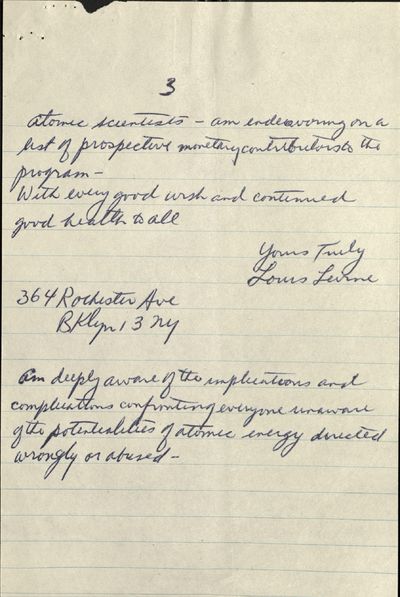 3
atomic scientists - am endeavoring on a
list of prospective monetary contributors to the
program -
With every good wish and continued
good health to all
Yours Truly
Louis Levine
364 Rochester Ave
BKlyn 13 Ny
am deeply aware of the implications and
complications confronting everyone unaware
of the potentialities of atomic energy directed
wrongly or abused -